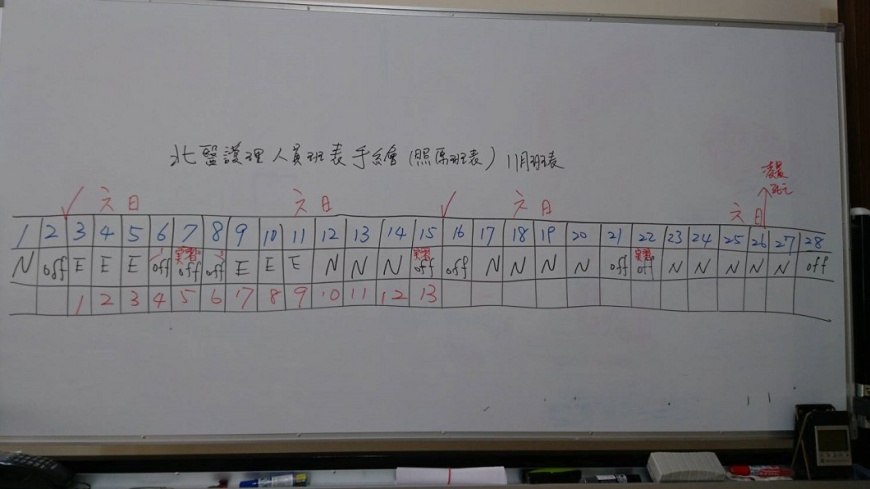 北醫護理人員班表手繪(照原班表) 11月班表
六 日 六 日 六 日 六 日
1 2 3 4 5 6 7 8 9 10 11 12 13 14 15 16 17 18 19 20 21 22 23 24 25 26 27 28
N off E E E off off off E E E N N N off off N N N N off off N N N N N off
1 2 3 4 5 6 7 8 9 10 11 12 13